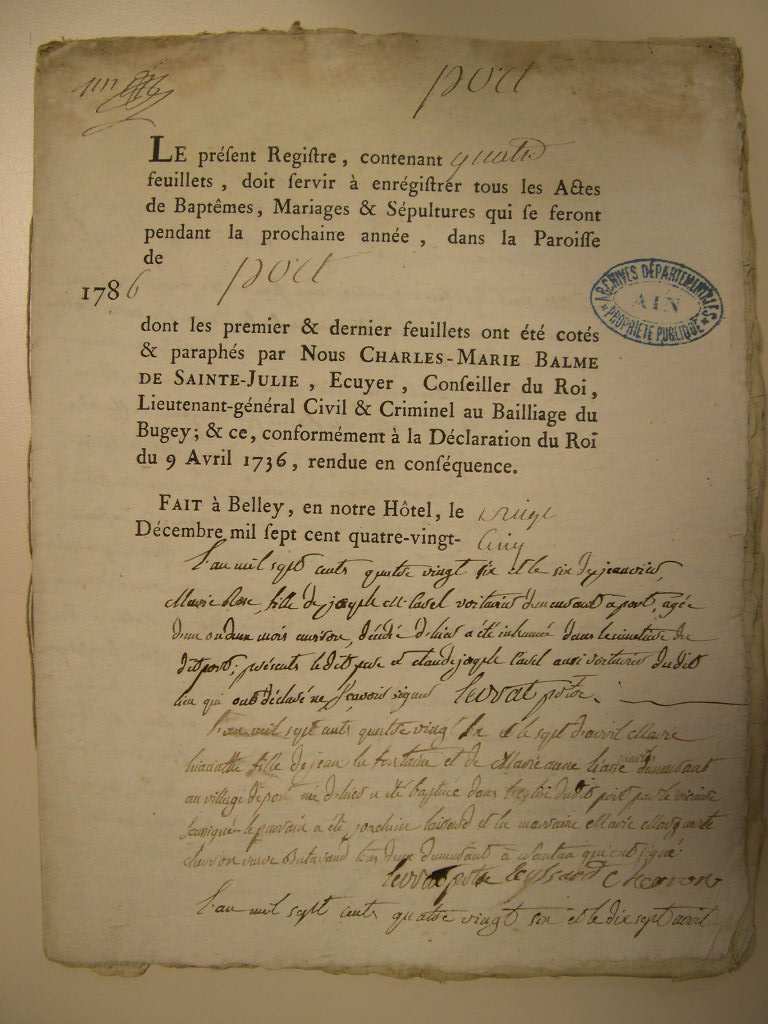 port
LE préſent Regiſtre, contenant quatre
feuillets, doit ſervir à enrégiſtrer tous les Actes
de Baptêmes, Mariages & Sépultures qui ſe feront
pendant la prochaine année, dans la Paroiſſe
de port
1786
ARCHIVES DÉPARTEMENTALES
AIN
PROPRIÉTÉ PUBLIQUE
dont les premier & dernier feuillets ont été cotés
& paraphés par Nous CHARLES-MARIE BALME
DE SAINTE-JULIE, Ecuyer, Conſeiller du Roi,
Lieutenant-général Civil & Criminel au Bailliage du
Bugey; & ce, conformément à la Déclaration du Roi
du 9 Avril 1736, rendue en conſéquence.
FAIT à Belley, en notre Hôtel, le
Décembre mil ſept cent quatre-vingt- Cinq
L'an mil sept cents quatre vingt six et le six de janvier,
Marie Rose, fille de joseph voiturier demeurant a port, agée
d'un ou deux mois environ, décédée d'hier a été inhumée dans le cimetiere du
dit port; présents le dit pere et claude joseph aussi voiturier du dit
lieu qui ont déclaré ne sçavoir signer
L'an mil sept cents quatre vingt six et le sept d'avril Marie
fille de jean et de Marie anne demeurant
au village de port née d'hier a été baptisée dans l'église du dit port par le vicaire
soussigné le parrain a été et la marraine Marie
veuve tous deux demeurant à qui ont signé
L'an mil sept cents quatre vingt six et le dix sept avril